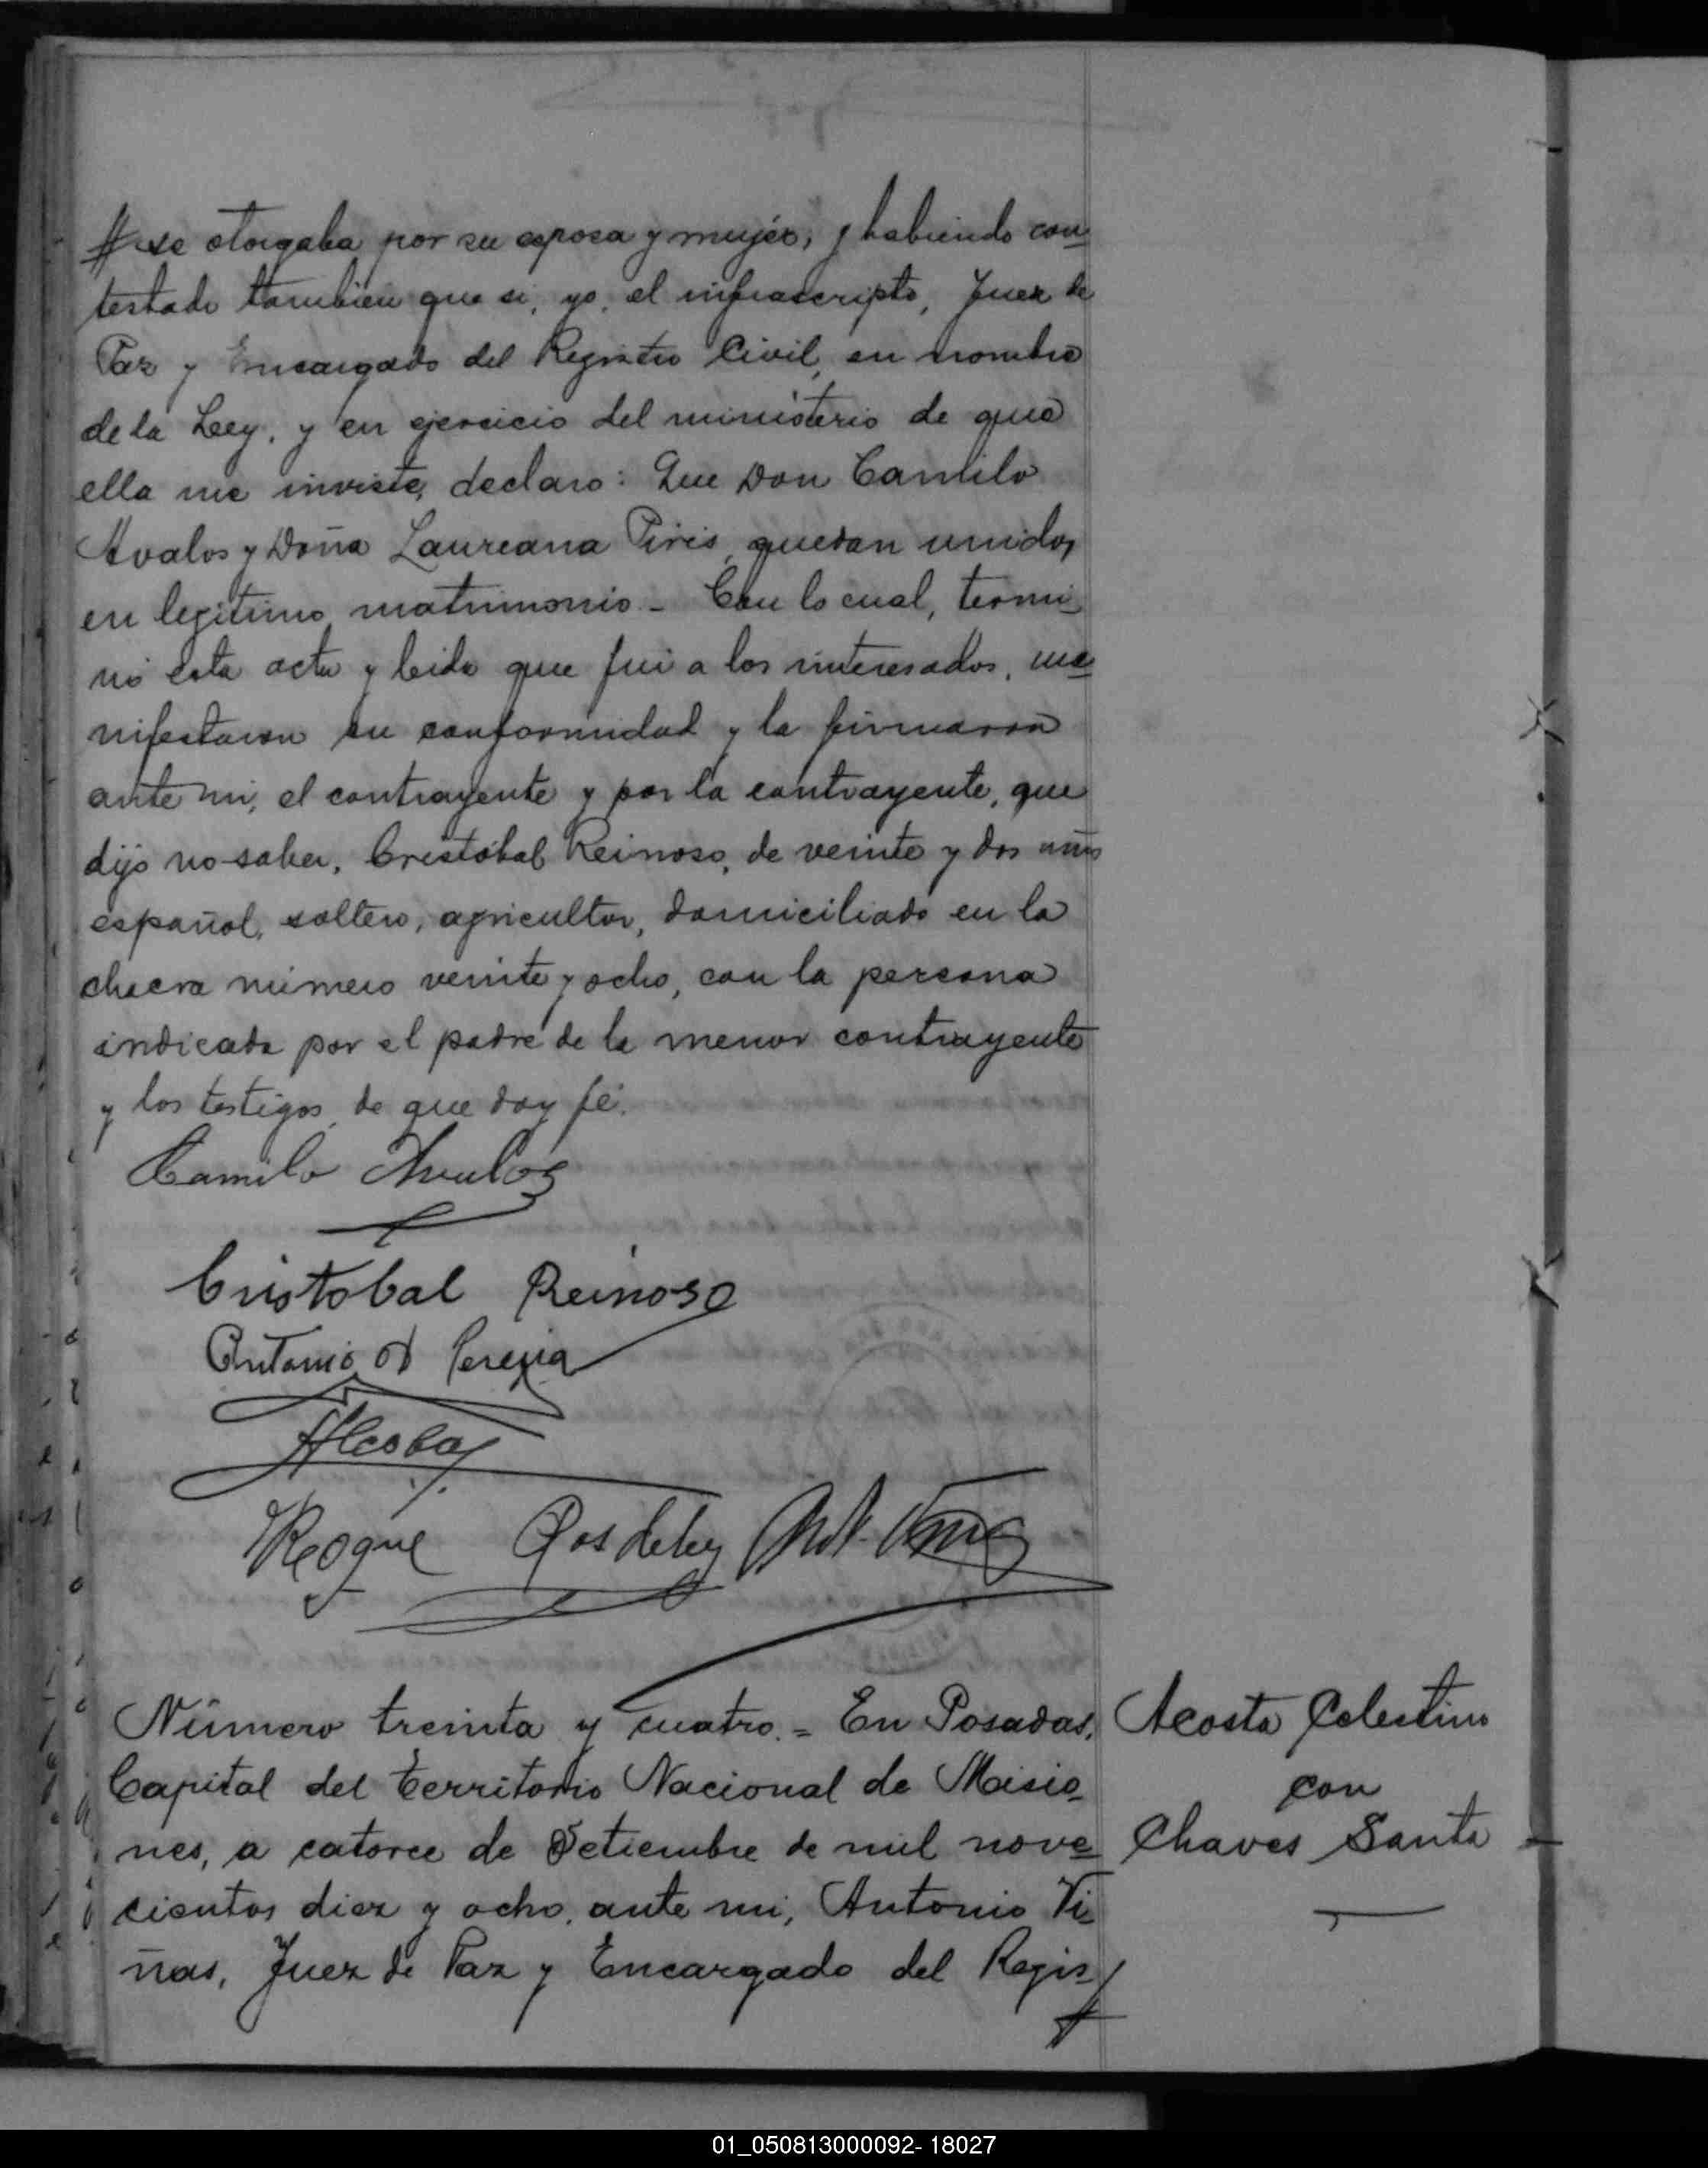 # se otorgaba por su esposa y mujer; y habiendo con-
testado tambien que si, yo, el infrascripto, Juez de
Paz y Encargado del Registro Civil, en nombre
de la Ley, y en ejercicio del ministerio de que
ella me inviste, declaro: Que Don Camilo
Avalos y Doña Laureana Piris, quedan unidos
en legitimo matrimonio - Con lo cual, termi-
nó esta acta y leida que fui a los interesados, ma-
nifestaron su conformidad y la firmaron
ante mi, el contrayente y por la contrayente, que
dijo no saber, Cristóbal Reinoso, de veinte y dos años
español, soltero, agricultor, domiciliado en la
chacra número veinte y ocho, con la persona
indicada por el padre de la menor contrayente
y los testigos, de que doy fé.
Camilo Avalos
Cristobal Reinoso
Antonio Pereyra
Roque
Número treinta y cuatro. = En Posadas,
Capital del Territorio Nacional de Misio-
nes, a catorce de Setiembre de mil nove-
cientos diez y ocho, ante mi, Antonio Vi-
ñas, Juez de Paz y Encargado del Regis-
Acosta Celestino
con
Chaves Santa
01_050813000092- 18027